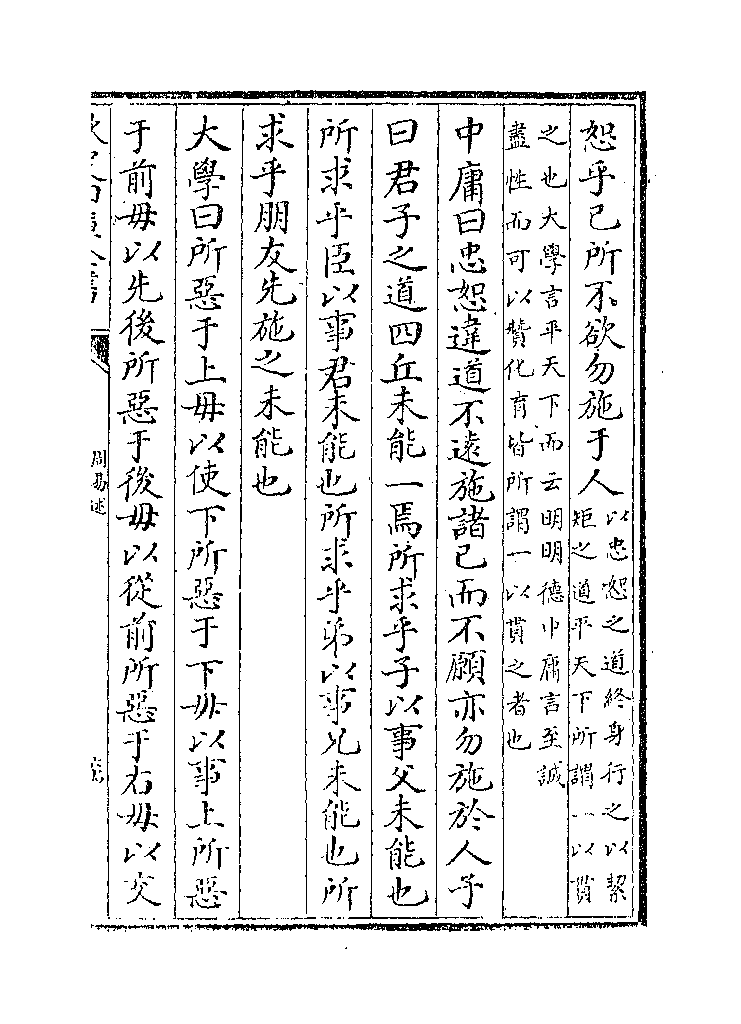 恕乎己所不欲勿施于人以忠恕之道終身行之以絜
矩之道平天下所謂一以貫
之也大學言平天下而云明明德中庸言至誠
盡性而可以贊化育皆所謂一以貫之者也
中庸曰忠恕違道不遠施諸己而不願亦勿施於人子
曰君子之道四丘未能一焉所求乎子以事父未能也
所求乎臣以事君未能也所求乎弟以事兄未能也所
求乎朋友先施之未能也
大學曰所惡于上毋以使下所惡于下毋以事上所惡
于前毋以先後所惡于後毋以從前所惡于右毋以交
周易述